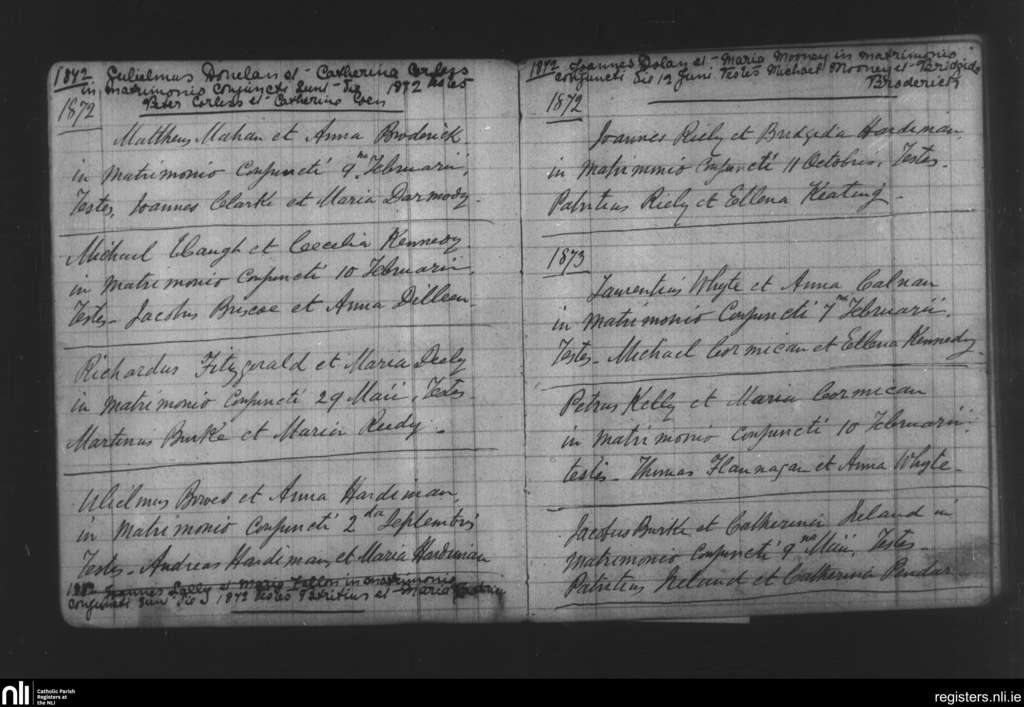 1872 Gulielmus Donelan et Catherina Corless
in matrimonio conjuncti sunt Die 1872 testes
Peter Corless et Catherine Coen
1872
Mattheus Mahan et Anna Broderick
in Matrimonio Conjuncti 9na Februarii,
Testes, Joannes Clarke et Maria Darmody.
Michael Clough et Coecelia Kennedy
in Matrimonio Conjuncti 10 Februarii
Testes - Jacobus Briscoe et Anna Dilleen
Richardus Fitzgerald et Maria Deely
in Matrimonio Conjuncti 29 Maii, Testes
Martinus Burke et Maria Reedy.
Ulielmus Bowes et Anna Hardiman,
in Matrimonio Conjuncti 2da Septembris
Testes - Andreas Hardiman et Maria Hardiman
Joannes Lally et Maria Fallon in matrimonio
conjuncti sunt Die 1872 testes Patritius et Maria
1872 Joannes Dolan et Maria Mooney in matrimonio
conjuncti Die 12 Juni Testes Michael Mooney et Bridgida
Broderick
1872
Joannes Riely et Bridgida Hardiman,
in Matrimonio Conjuncti 11 Octobris, Testes -
Patritius Riely et Ellena Keating -
1873
Laurentius Whyte et Anna Calnan
in Matrimonio Conjuncti 7ma Februarii.
Testes - Michael Cormican et Ellena Kennedy -
Petrus Kelly et Maria Cormican
in Matrimonio Conjuncti 10 Februarii.
testes - Thomas Flannagan et Anna Whyte -
Jacobus Burke et Catherina Ireland in
Matrimonio Conjuncti 9na Maii, Testes -
Patritius Ireland et Catherina
nli
Catholic Parish
Registers at
the NLI
registers.nli.ie